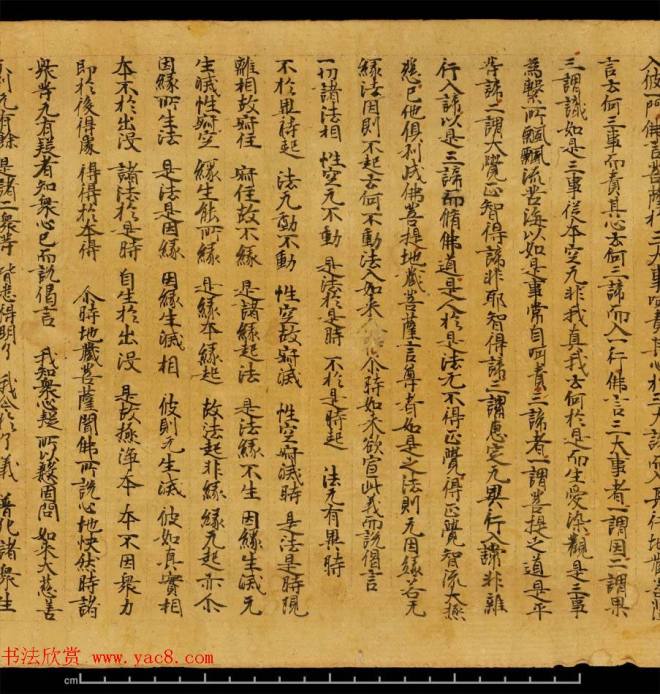 入彼門佛言菩薩於三大事呵責其心於三大諦而入其行地藏菩薩
言云何三事而責其心云何三諦而入一行佛言三大事者一謂因二謂果
三謂識如是三事從本空无非我真我云何於是而生愛染觀是三事
為繫所飄飄流苦海以如是事常自呵責三諦者一謂菩提之道是平
等諦二謂大覺正智得諦非耶智得諦三謂慧定无異行入諦非離
行入諦以是三諦而脩佛道是人於是法无不得正覺得正覺智流大極
慈己他俱利成佛菩提地藏菩薩言尊者如是之法則无因緣若无
緣法因則不起云何不動法入如來 尒時如來欲宣此義而說偈言
一切諸法相 性空无不動 是法於是時 不於是時起 法无有異時
不於異時起 法无動不動 性空故寂滅 性空寂滅時 是法是時現
離相故寂住 寂住故不緣 是諸緣起法 是法緣不生 因緣生滅无
生滅性寂空 緣生能所緣 是緣本緣起 故法起非緣 緣无起亦尒
因緣所生法 是法是因緣 因緣生滅相 彼則无生滅 彼如真實相
本不於出没 諸法於是時 自生於出没 是故極淨本 本不因衆力
即於後得處 得得於本得 尒時地藏菩薩聞佛所說心地快然時諸
衆等无有疑者知衆心已而說偈言 我知衆心疑 所以慇固問 如來大慈善
別无有餘 是諸二衆等 皆悉得明了 我今於了義 普化諸衆生
书法欣赏 www.yac8.com
cm